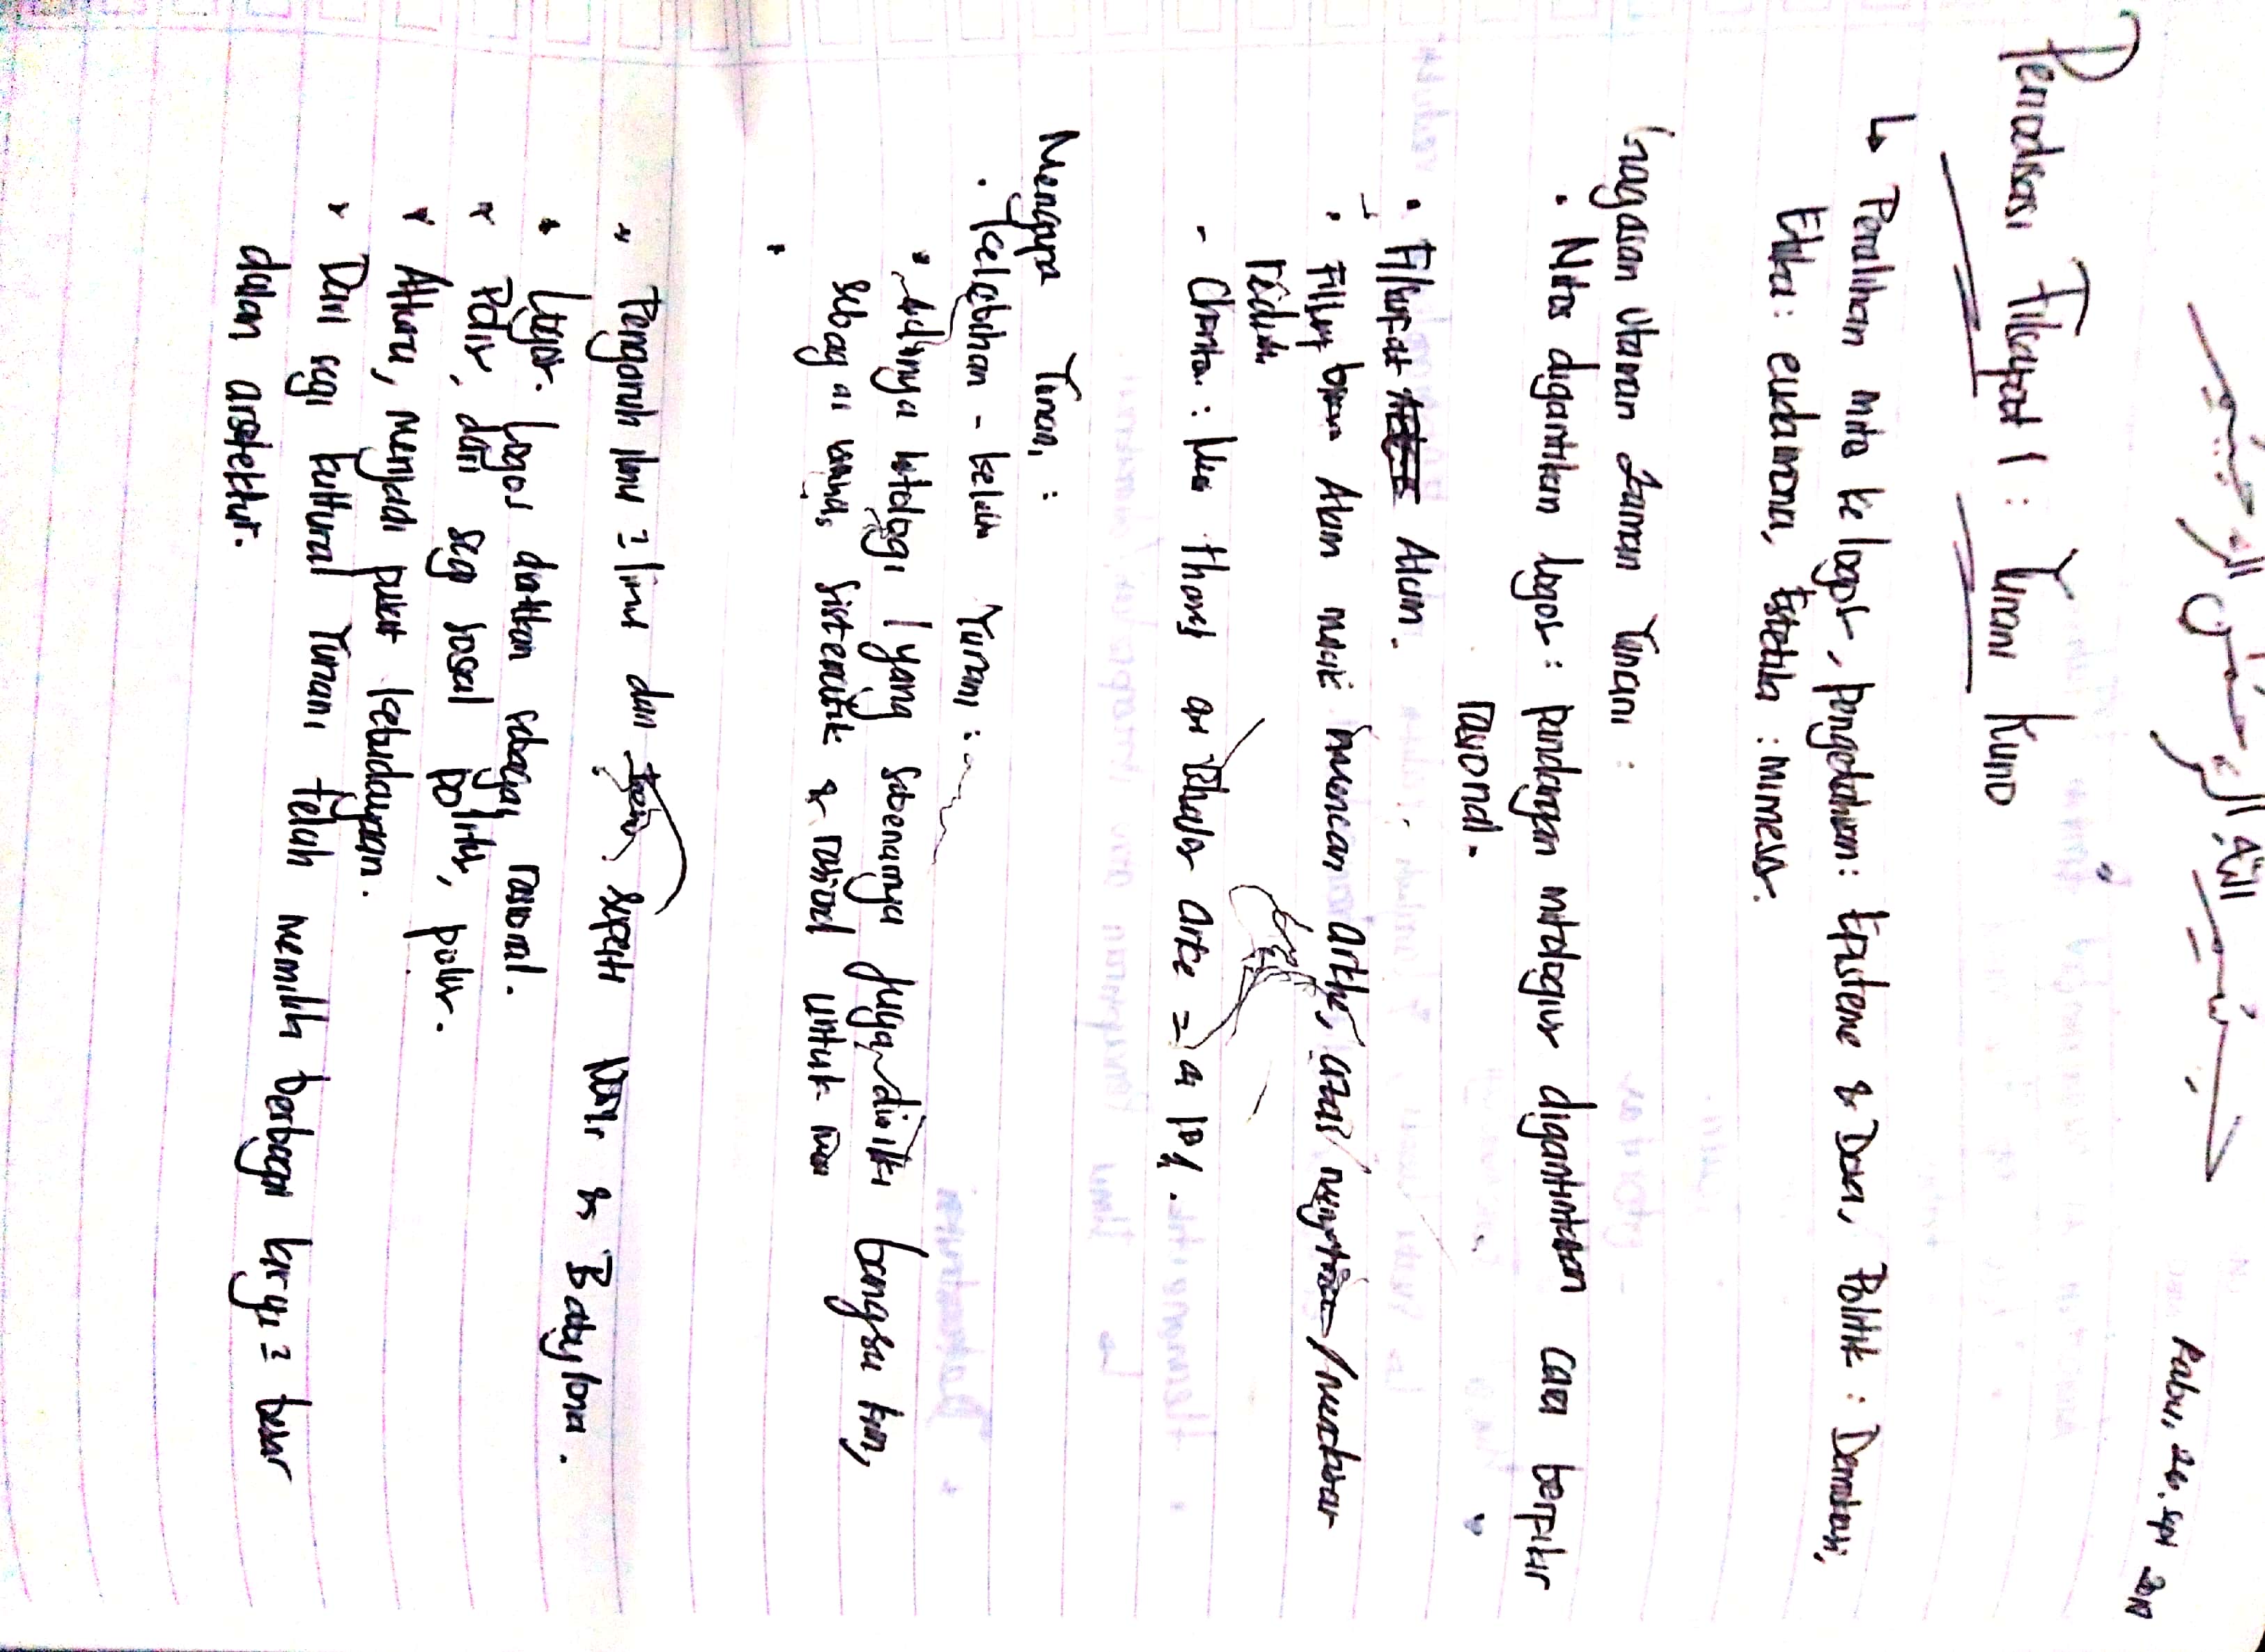 بسم الله الرحمن الرحيم
Rabu, 26. Sept 2010
Periodisasi Filsafat 1 : Yunani Kuno
↳ Peralihan mite ke logos, pengetahuan: Episteme & Doxa, Politik : Demokrasi,
Etika : eudaimonia, Estetika : mimesis.
Gagasan Utaman Zaman Yunani :
• Mitos digantikan logos : pandangan mitologis digantinkan cara berfikir
rasional.
• Filsafat Alam.
• Filsuf Alam mulai mencari arkhe, azas /
- : thares Arke = air.
Mengapa Yunani :
• Kelebihan - kelebihan Yunani :
• Adanya mitologi yang sebenarnya juga dimiliki bangsa lain,
sebagai usaha sistematik & rasional untuk
• Pengaruh ilmu = ilmu dari seperti Mesir & Babylonia.
• Logos. Logos diartikan sebagai rasional.
• Polis, dari segi sosial politis, polis.
• Athena, menjadi pusat kebudayaan.
• Dari segi kultural Yunani telah memiliki berbagai karya = besar
dalam arsitektur.